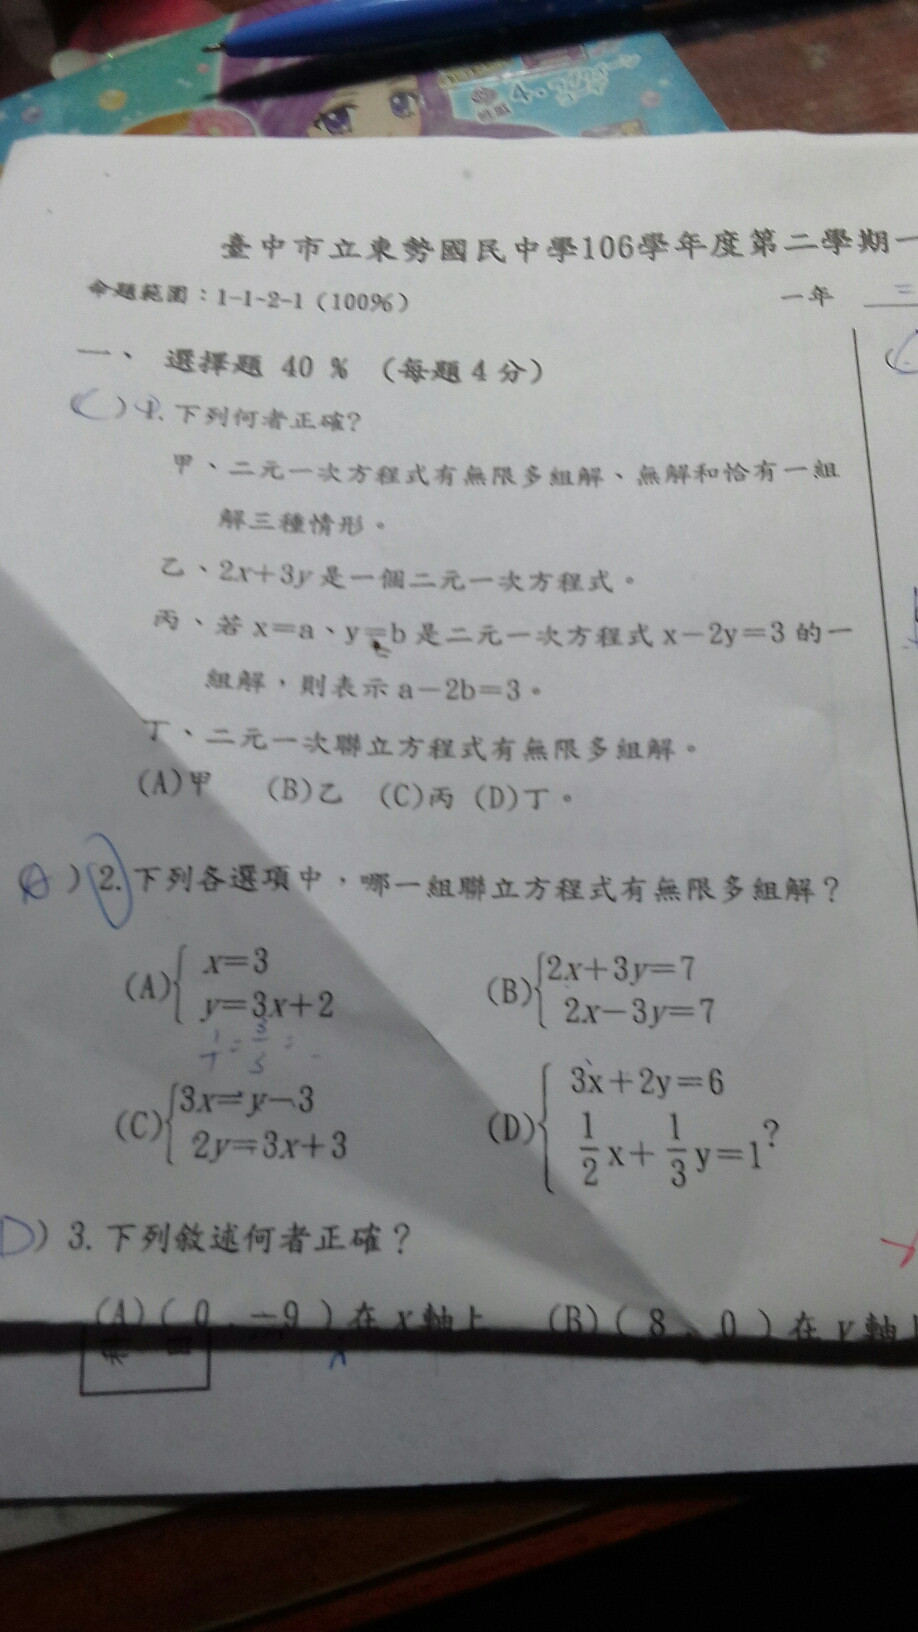 臺中市立東勢國民中學106學年度第二學期一
命題範圍：1-1~2-1（100%）
一年 三
一、 選擇題 40 % （每題4分）
(C) 1. 下列何者正確?
甲、二元一次方程式有無限多組解、無解和恰有一組
解三種情形。
乙、2x+3y是一個二元一次方程式。
丙、若x=a、y=b是二元一次方程式x-2y=3的一
組解，則表示a-2b=3。
丁、二元一次聯立方程式有無限多組解。
(A)甲 (B)乙 (C)丙 (D)丁。
) 2. 下列各選項中，哪一組聯立方程式有無限多組解？
(A){ x=3 (B){ 2x+3y=7
y=3x+2 2x-3y=7
(C){ 3x=y-3 (D){ 3x+2y=6
2y=3x+3 1/2 x+ 1/3 y=1 ?
D) 3. 下列敘述何者正確？
(A)( 0 , -9 )在x軸上 (B)( 8 , 0 )在y軸上